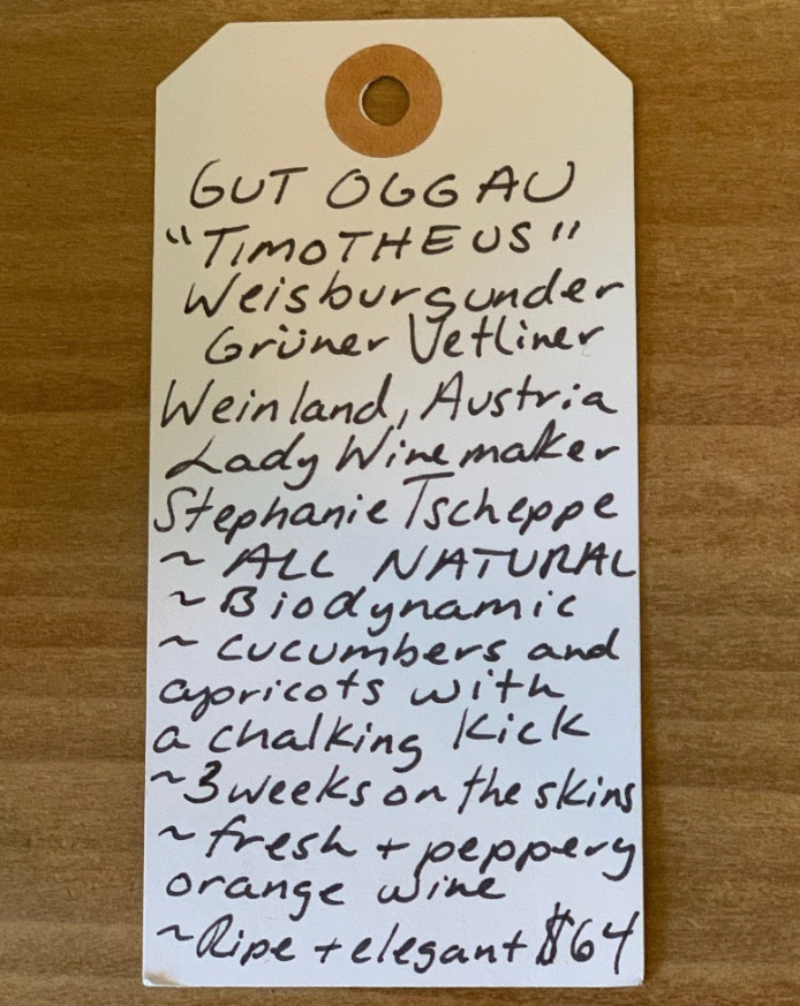 GUT OGGAU
"TIMOTHEUS"
Weisburgunder
Grüner Vetliner
Weinland, Austria
Lady Winemaker
Stephanie Tscheppe
~ ALL NATURAL
~ Biodynamic
~ cucumbers and
apricots with
a chalking kick
~3 weeks on the skins
~ fresh + peppery
orange wine
~Ripe + elegant $64